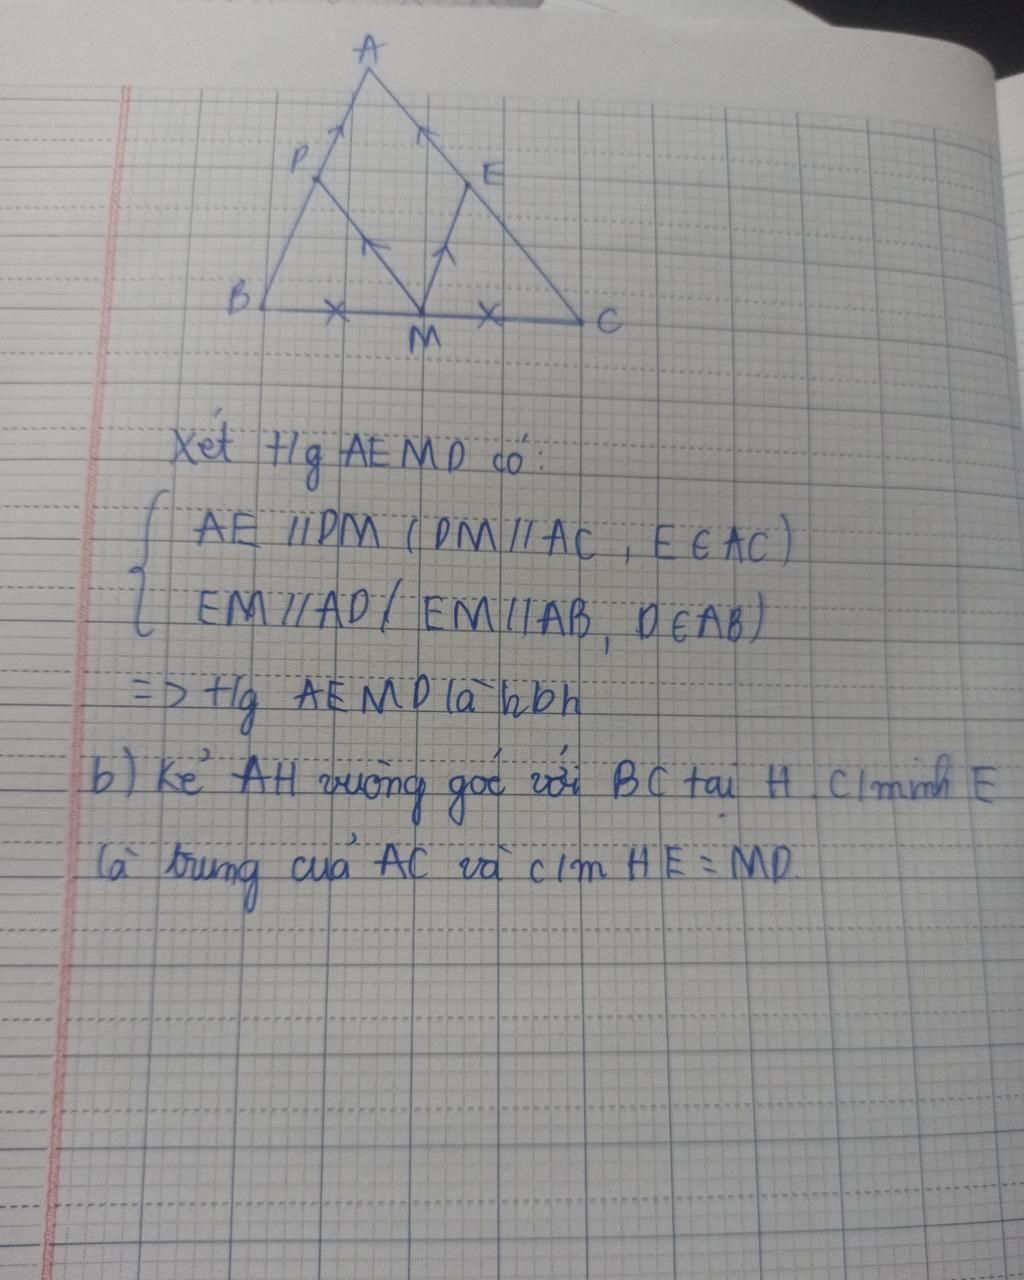 A
D
E
B
M
C
Xét t/g AEMD có:
AE // DM ( DM // AC , E ∈ AC )
EM // AD ( EM // AB , D ∈ AB )
=> t/g AEMD là hbh
b) Kẻ AH vuông góc với BC tại H. C/minh E
là trung của AC và c/m HE = MD.